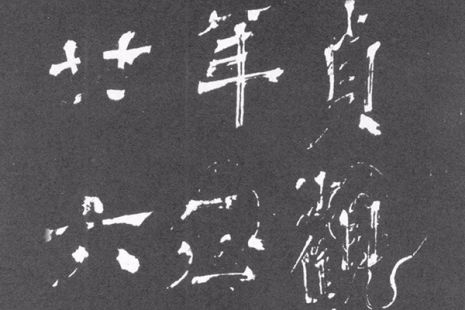 貞觀
年正
廿六